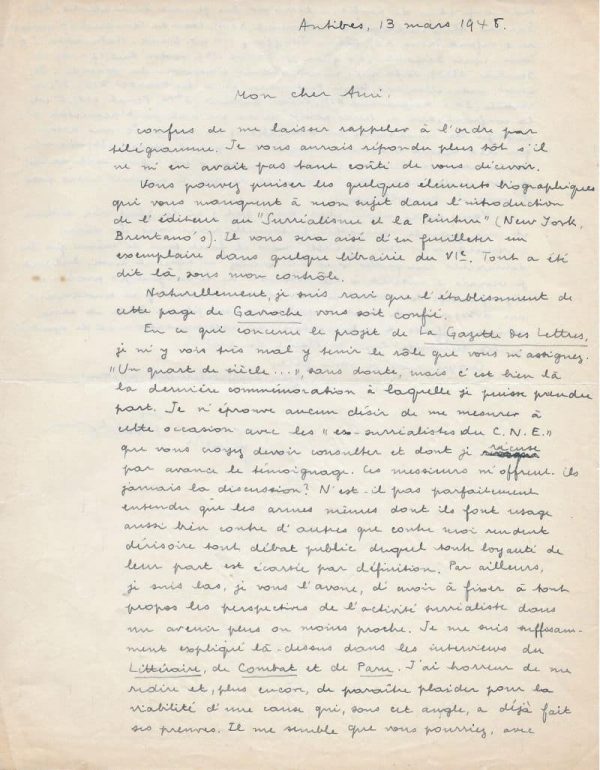 Antibes, 13 mars 1948.
Mon cher Ami.
confus de me laisser rappeler à l'ordre par
télégramme. Je vous aurais répondu plus tôt s'il
ne m'en avait pas tant coûté de vous décevoir.
Vous pouvez puiser les quelques éléments biographiques
qui vous manquent à mon sujet dans l'introduction
de l'éditeur au "Surréalisme et la Peinture" (New York,
Brentano's). Il vous sera aisé d'en feuilleter un
exemplaire dans quelque librairie du VIe. Tout a été
dit là, sous mon contrôle.
Naturellement, je suis ravi que l'établissement de
cette page de Gavroche vous soit confié.
En ce qui concerne le projet de La Gazette des Lettres,
je m'y vois très mal y tenir le rôle que vous m'assignez.
"Un quart de siècle...", sans doute, mais c'est bien là
la dernière commémoration à laquelle je puisse prendre
part. Je n'éprouve aucun désir de me mesurer à
cette occasion avec les "ex-surréalistes du C.N.E."
que vous croyez devoir consulter et dont je récuse
par avance le témoignage. Ces messieurs m'offrent-ils
jamais la discussion? N'est-il pas parfaitement
entendu que les armes mêmes dont ils font usage
aussi bien contre d'autres que contre moi rendent
dérisoire tout débat public duquel toute loyauté de
leur part est écartée par définition. Par ailleurs,
je suis las, je vous l'avoue, d'avoir à fixer à tout
propos les perspectives de l'activité surréaliste dans
un avenir plus ou moins proche. Je me suis suffisam-
ment expliqué là-dessus dans les interviews du
Littéraire, de Combat et de Paru. J'ai horreur de me
redire et, plus encore, de paraître plaider pour la
viabilité d'une cause qui, sous cet angle, a déjà fait
ses preuves. Il me semble que vous pourriez, avec